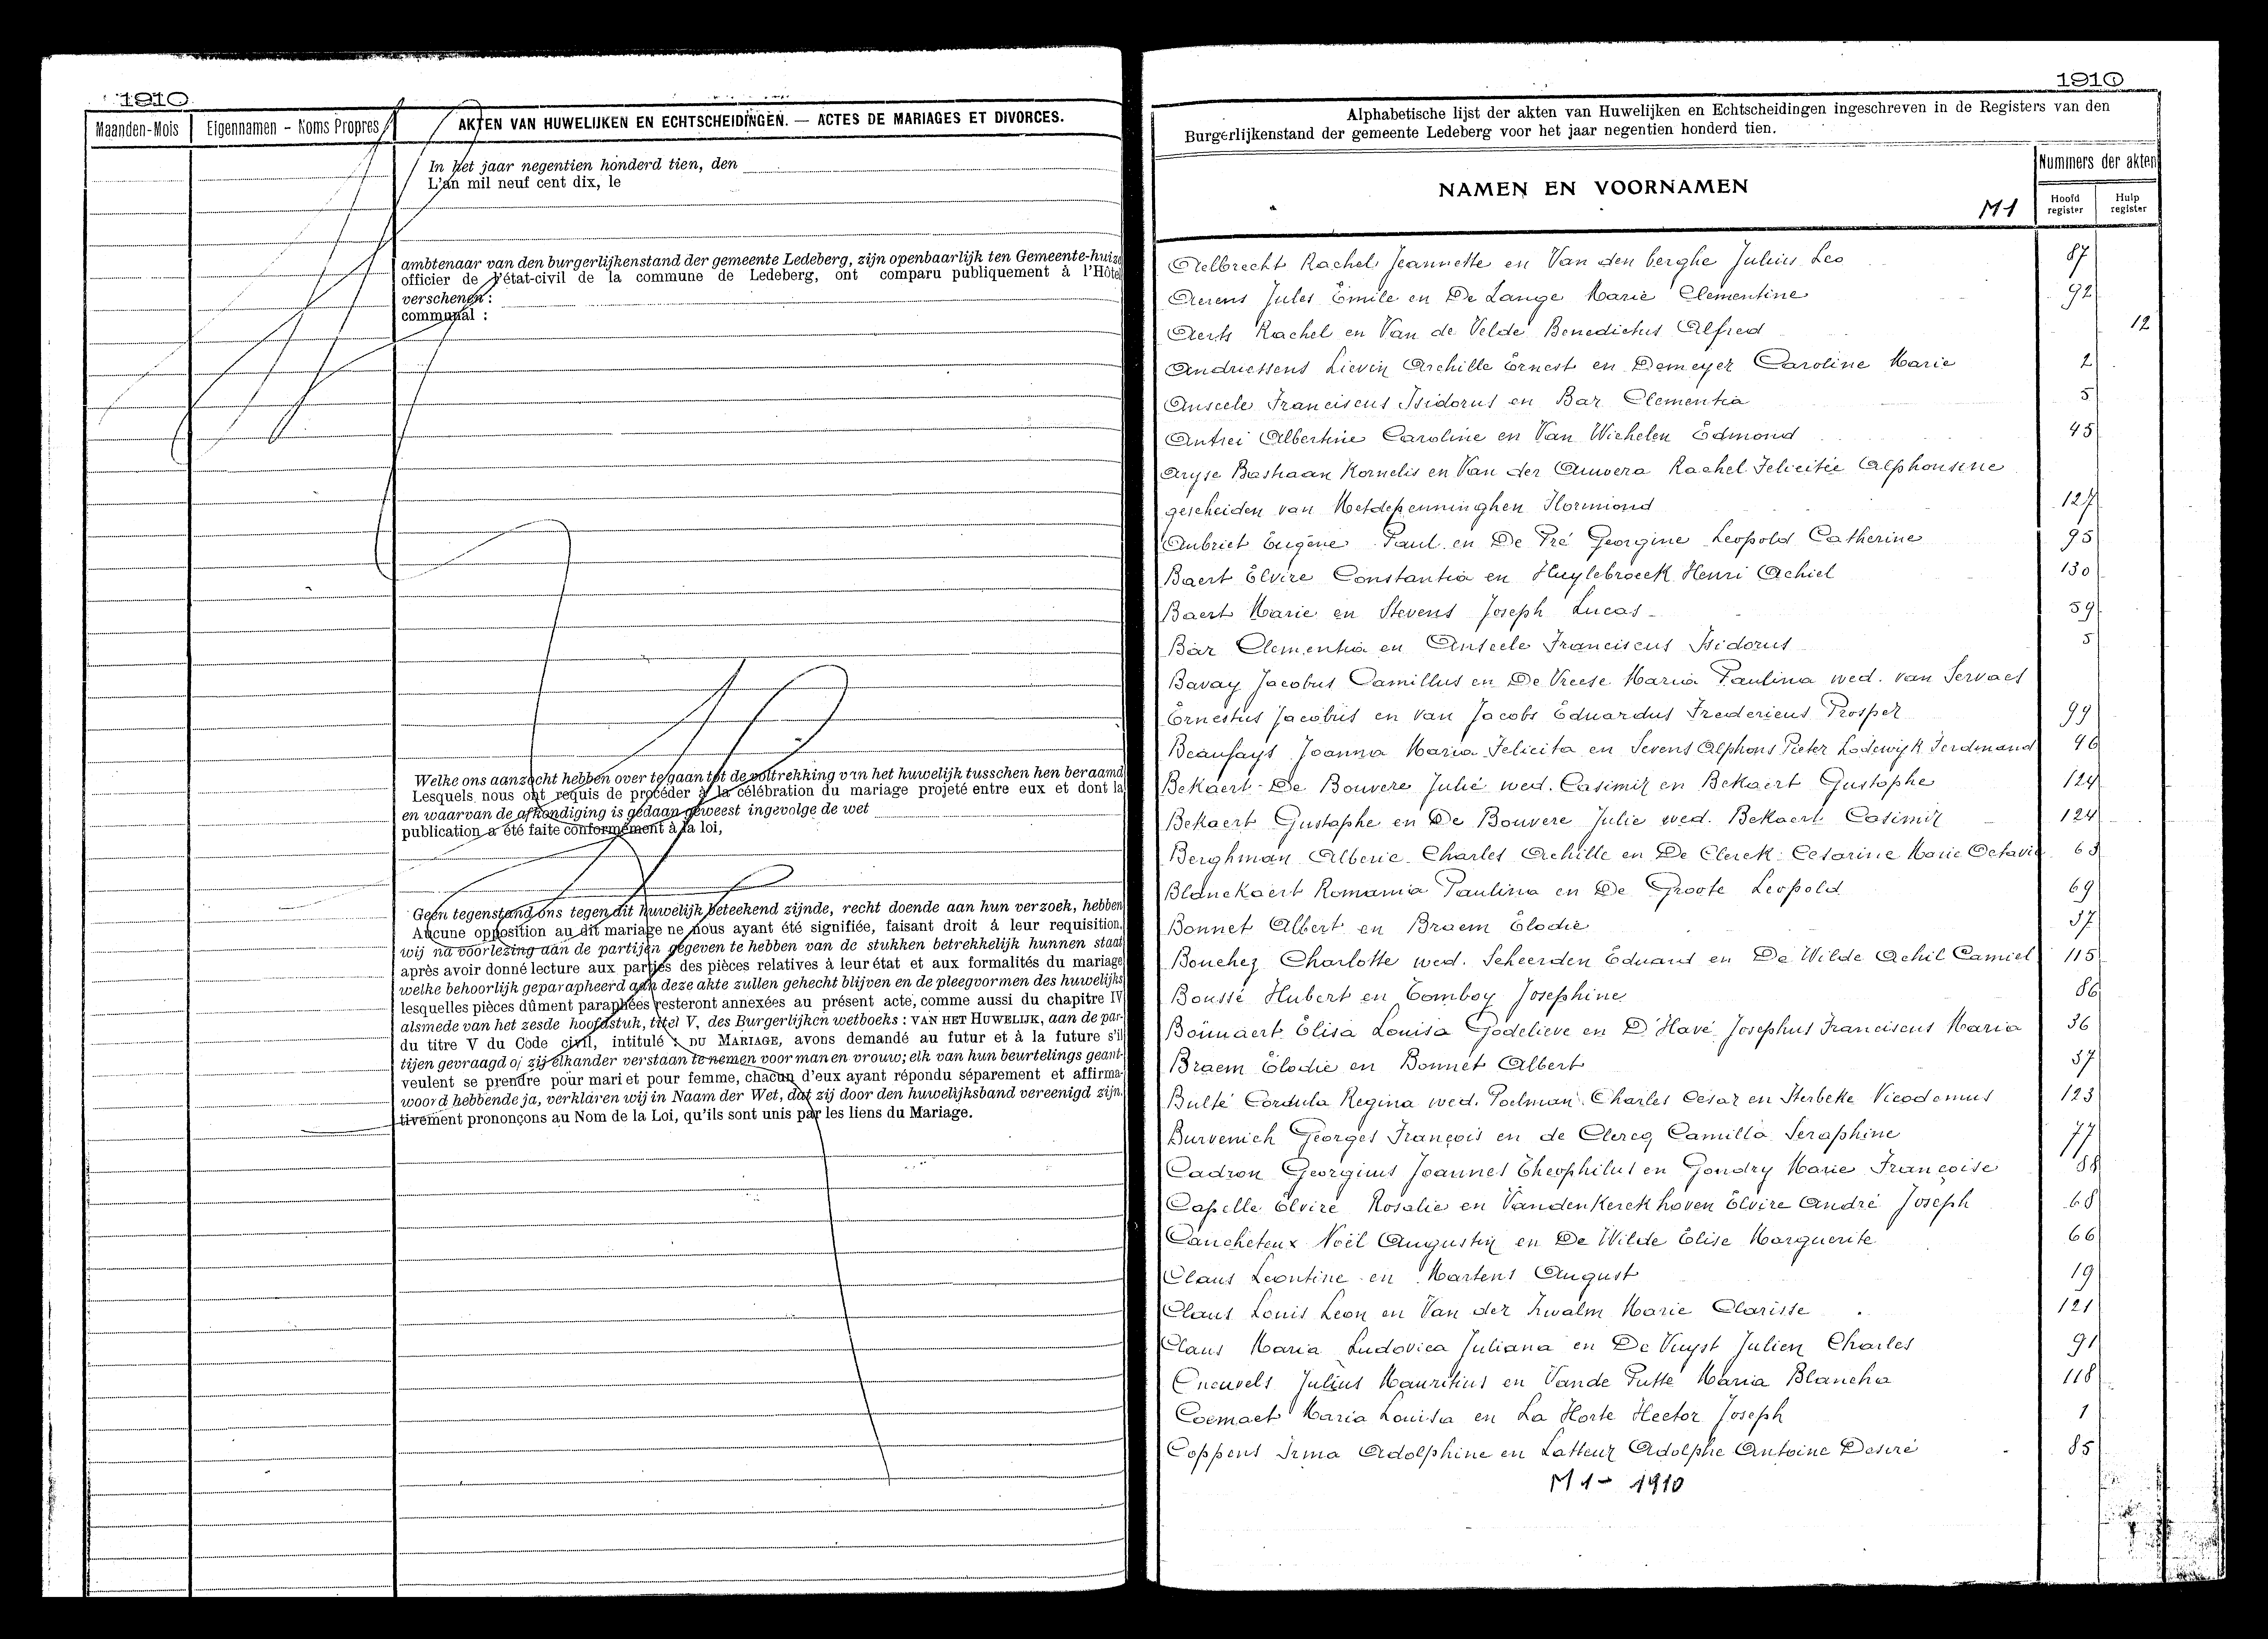 1910
Maanden-Mois
Eigennamen - Noms Propres
AKTEN VAN HUWELIJKEN EN ECHTSCHEIDINGEN. — ACTES DE MARIAGES ET DIVORCES.
In het jaar negentien honderd tien, den
L'an mil neuf cent dix, le
ambtenaar van den burgerlijkenstand der gemeente Ledeberg, zijn openbaarlijk ten Gemeente-huize
officier de l'état-civil de la commune de Ledeberg, ont comparu publiquement à l'Hôtel
verschenen :
communal :
Welke ons aanzocht hebben over te gaan tot de voltrekking van het huwelijk tusschen hen beraamd
Lesquels nous ont requis de procéder à la célébration du mariage projeté entre eux et dont la
en waarvan de afkondiging is gedaan geweest ingevolge de wet
publication a été faite conformément à la loi,
Geen tegenstand ons tegen dit huwelijk beteekend zijnde, recht doende aan hun verzoek, hebben
Aucune opposition au dit mariage ne nous ayant été signifiée, faisant droit à leur requisition,
wij na voorlezing aan de partijen gegeven te hebben van de stukken betrekkelijk hunnen staat
après avoir donné lecture aux parties des pièces relatives à leur état et aux formalités du mariage
welke behoorlijk geparapheerd aan deze akte zullen gehecht blijven en de pleegvormen des huwelijks
lesquelles pièces dûment paraphées resteront annexées au présent acte, comme aussi du chapitre IV
alsmede van het zesde hoofdstuk, titel V, des Burgerlijken wetboeks : VAN HET HUWELIJK, aan de par-
du titre V du Code civil, intitulé : DU MARIAGE, avons demandé au futur et à la future s'il
tijen gevraagd of zij elkander verstaan te nemen voor man en vrouw; elk van hun beurtelings geant-
veulent se prendre pour mari et pour femme, chacun d'eux ayant répondu séparement et affirma-
woord hebbende ja, verklaren wij in Naam der Wet, dat zij door den huwelijksband vereenigd zijn.
tivement prononçons au Nom de la Loi, qu'ils sont unis par les liens du Mariage.
1910
Alphabetische lijst der akten van Huwelijken en Echtscheidingen ingeschreven in de Registers van den
Burgerlijkenstand der gemeente Ledeberg voor het jaar negentien honderd tien.
NAMEN EN VOORNAMEN
M1
Nummers der akten
Hoofd register
Hulp register
Aelbrecht Rachel Jeannette en Van den berghe Julius Leo 87
Aerens Jules Emile en De Lange Marie Clementine 92
Aerts Rachel en Van de Velde Benedictus Alfred 12
Andriessens Lievin Archille Ernest en Demeyer Caroline Marie 2
Anseele Franciscus Isidorus en Bar Clementia 5
Antrei Albertine Caroline en Van Wichelen Edmond 45
Aryse Bastiaan Kornelis en Van der Auwera Rachel Felicitée Alphonsine
gescheiden van Metdepenninghen Hormiond 127
Aubriet Eugène Paul en De Pré Georgine Leopold Catherine 95
Baert Elvire Constantia en Huylebroeck Henri Achiel 130
Baert Marie en Stevens Joseph Lucas 59
Bar Clementia en Anseele Franciscus Isidorus 5
Bavay Jacobus Camillus en De Vreese Maria Paulina wed. van Servaes
Ernestus Jacobus en van Jacobs Eduardus Fredericus Prosper 99
Beaufays Joanna Maria Felicita en Sevens Alphons Pieter Lodewijk Ferdinand 46
Bekaert - De Bouvere Julie wed. Casimir en Bekaert Gustaphe 124
Bekaert Gustaphe en De Bouvere Julie wed. Bekaert Casimir 124
Berghman Alberic Charles Achille en De Clerck Cesarine Marie Octavie 63
Blanckaert Romania Paulina en De Groote Leopold 69
Bonnet Albert en Braem Elodie 37
Bouchez Charlotte wed. Scheerden Eduard en De Wilde Achil Camiel 115
Boussé Hubert en Comboy Josephine 86
Bouuaert Elisa Louisa Godelieve en D'Havé Josephus Franciscus Maria 36
Braem Elodie en Bonnet Albert 37
Bulté Cordula Regina wed. Poelman Charles Cesar en Sterbeke Nicodemus 123
Burvenich Georges François en de Clercq Camilla Seraphine 77
Cadron Georgius Joannes Theophilus en Gondry Marie Françoise 88
Capelle Elvire Rosalie en Vandenkerckhoven Elvire André Joseph 68
Caucheteux Noël Augustin en De Wilde Elise Marguerite 66
Claus Leontine en Martens August 19
Claus Louis Leon en Van der Zwalm Marie Clarisse 121
Claus Maria Ludovica Juliana en De Vuyst Julien Charles 91
Cneuvels Julius Mauritius en Vande Putte Maria Blancha 118
Coemaet Maria Louisa en La Horte Hector Joseph 1
Coppens Irma Adolphine en Latteur Adolphe Antoine Desiré 85
M1 - 1910